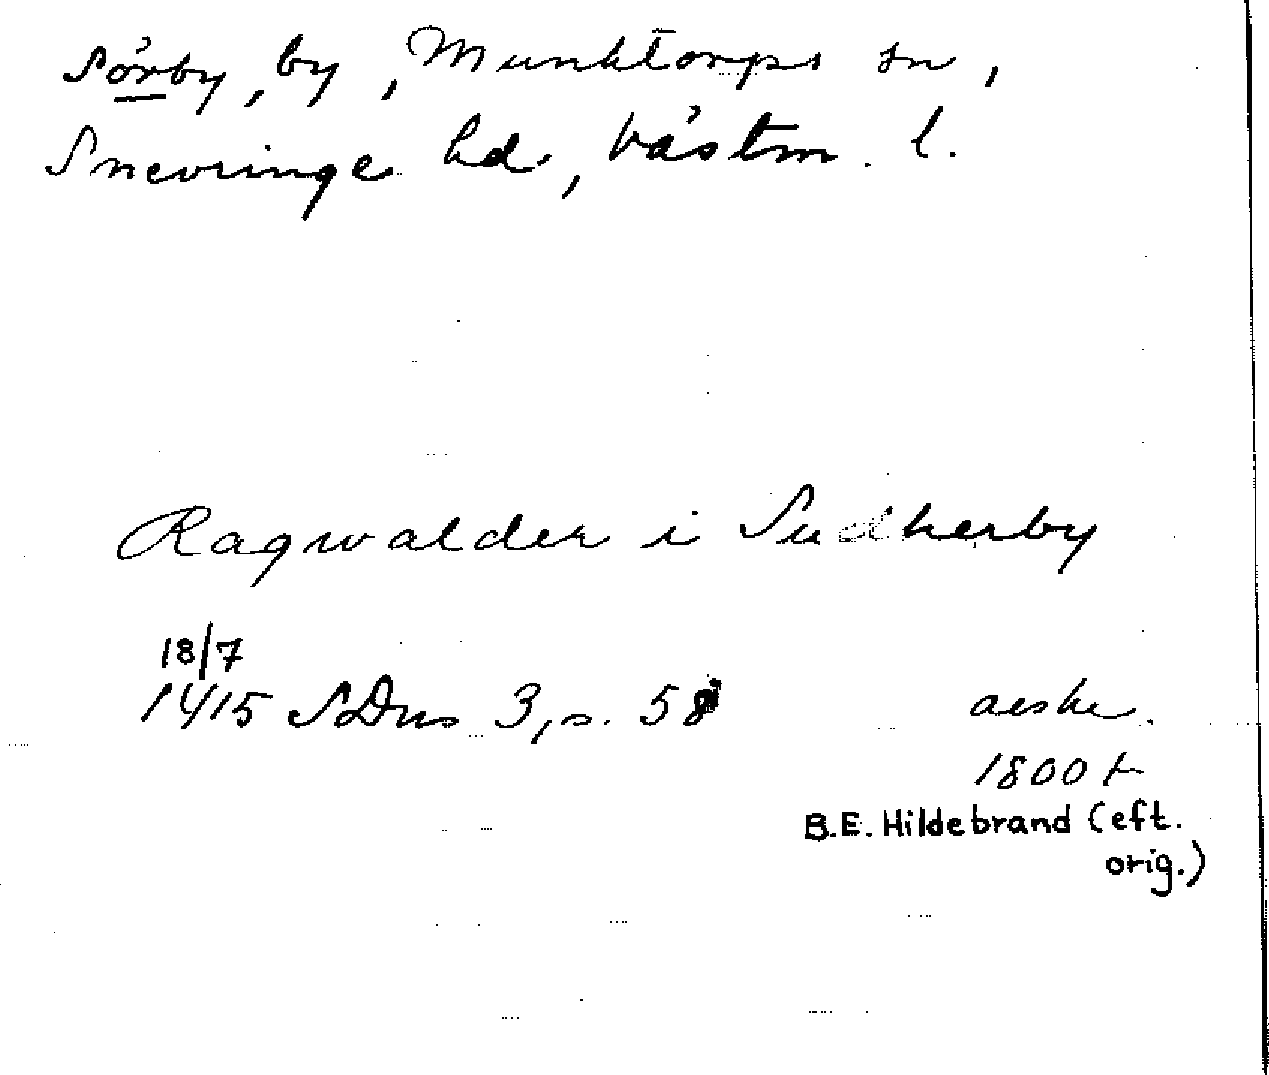 Sörby, by, Munktorps sn,
Snevringe hd, Västm. l.
Ragwalder i Sudherby
18/7
1415 SDns 3, s. 58
avskr.
1800 t
B.E. Hildebrand (eft.
orig.)